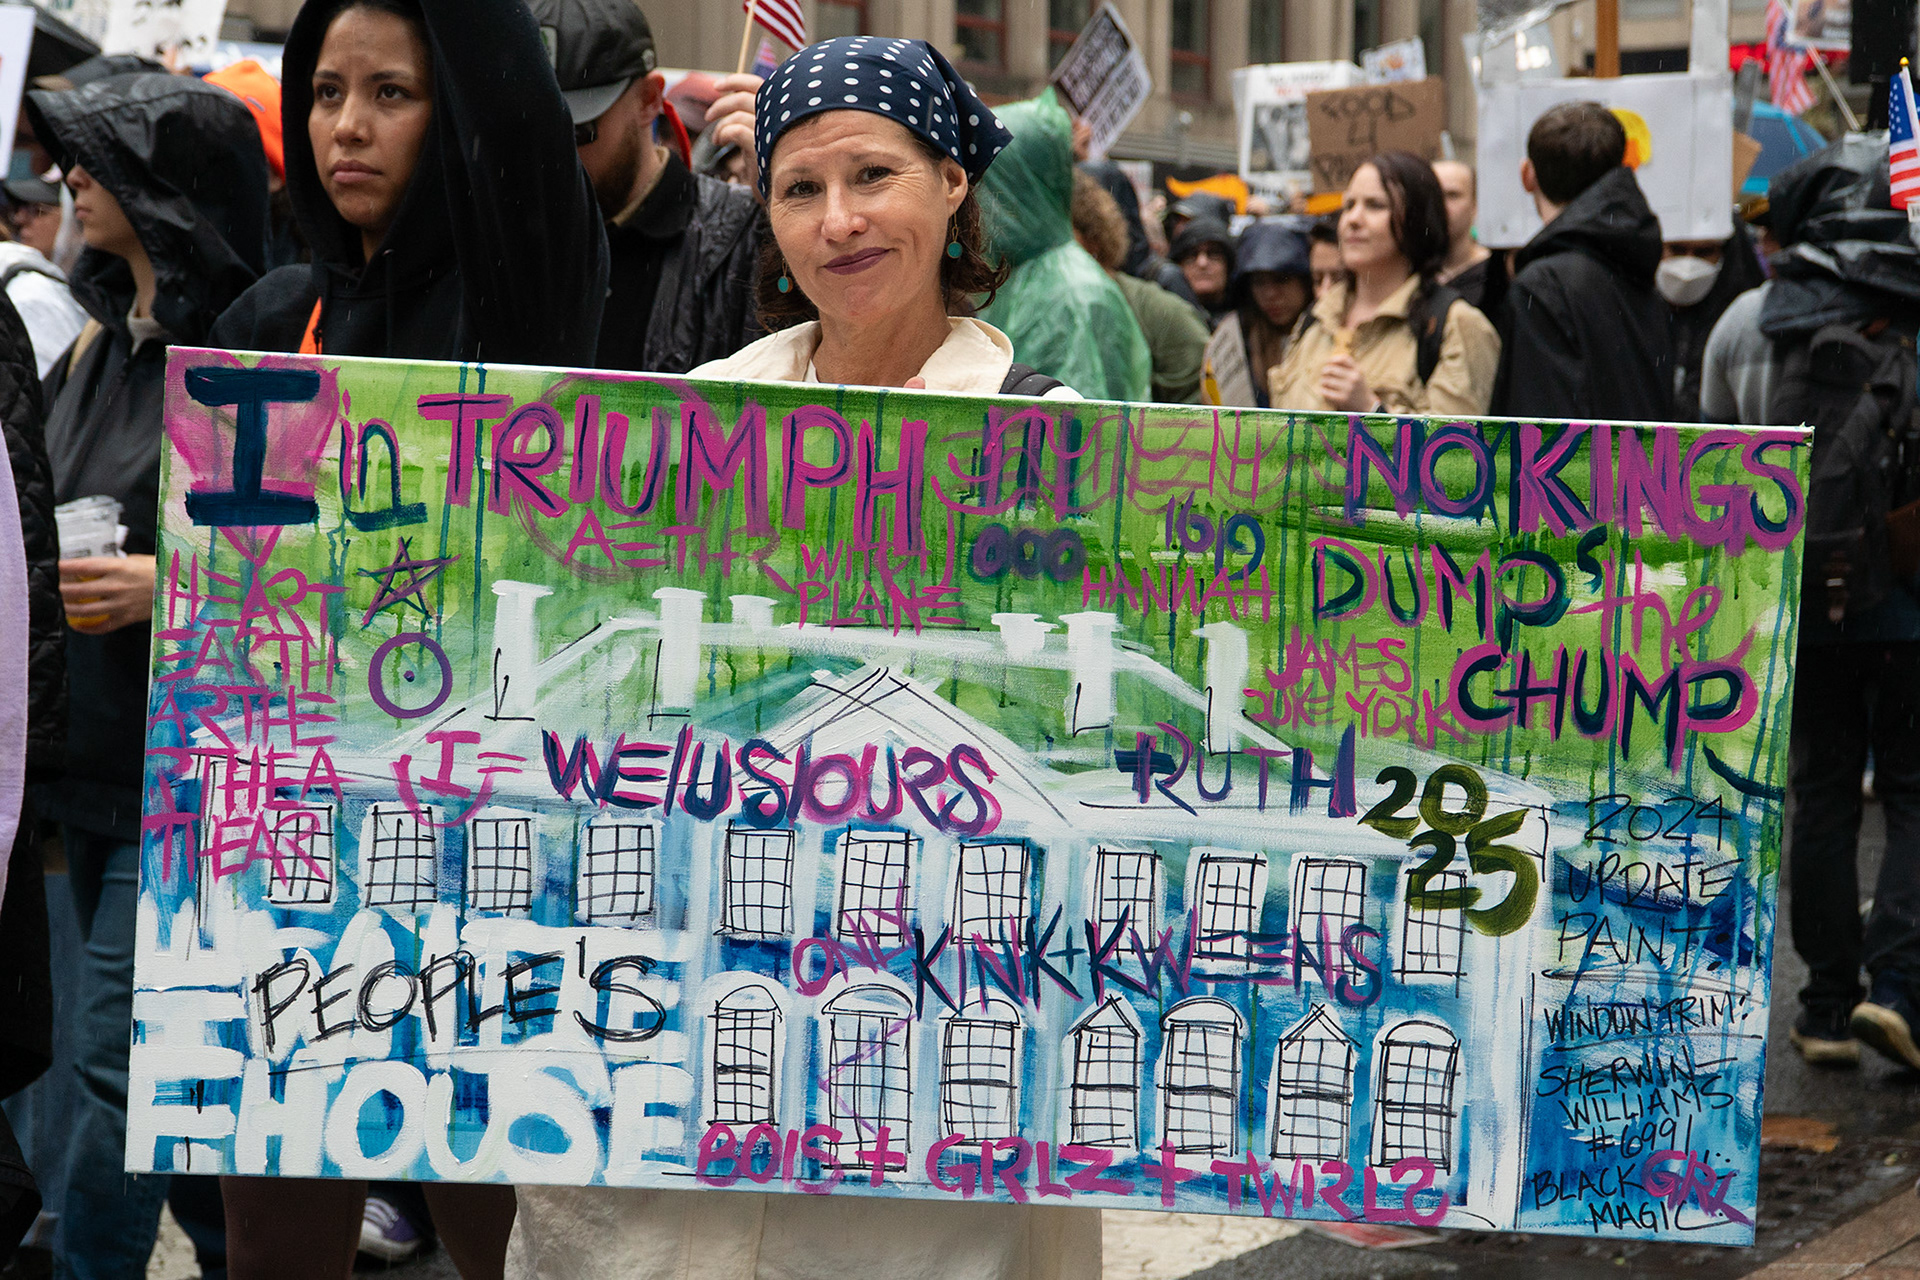 FOOD
4
I in TRIUMPH NO KINGS
AETHR
WITH
PLANE
000
1619
HANWAH
DUMP'S
the
CHUMP
JAMES
DUKE YORK
HEART
EARTH
ARTHE
RTHEA
THEAR
I = WE/US/OURS
RUTH
2025
2024
UPDATE
PAINT:
WINDOW TRIM:
SHERWIN-
WILLIAMS
#6991
BLACK
MAGIC
GRLZ
ONLY KINK+KWEENS
PEOPLE'S
HOUSE
BOIS + GRLZ + TWIRLS